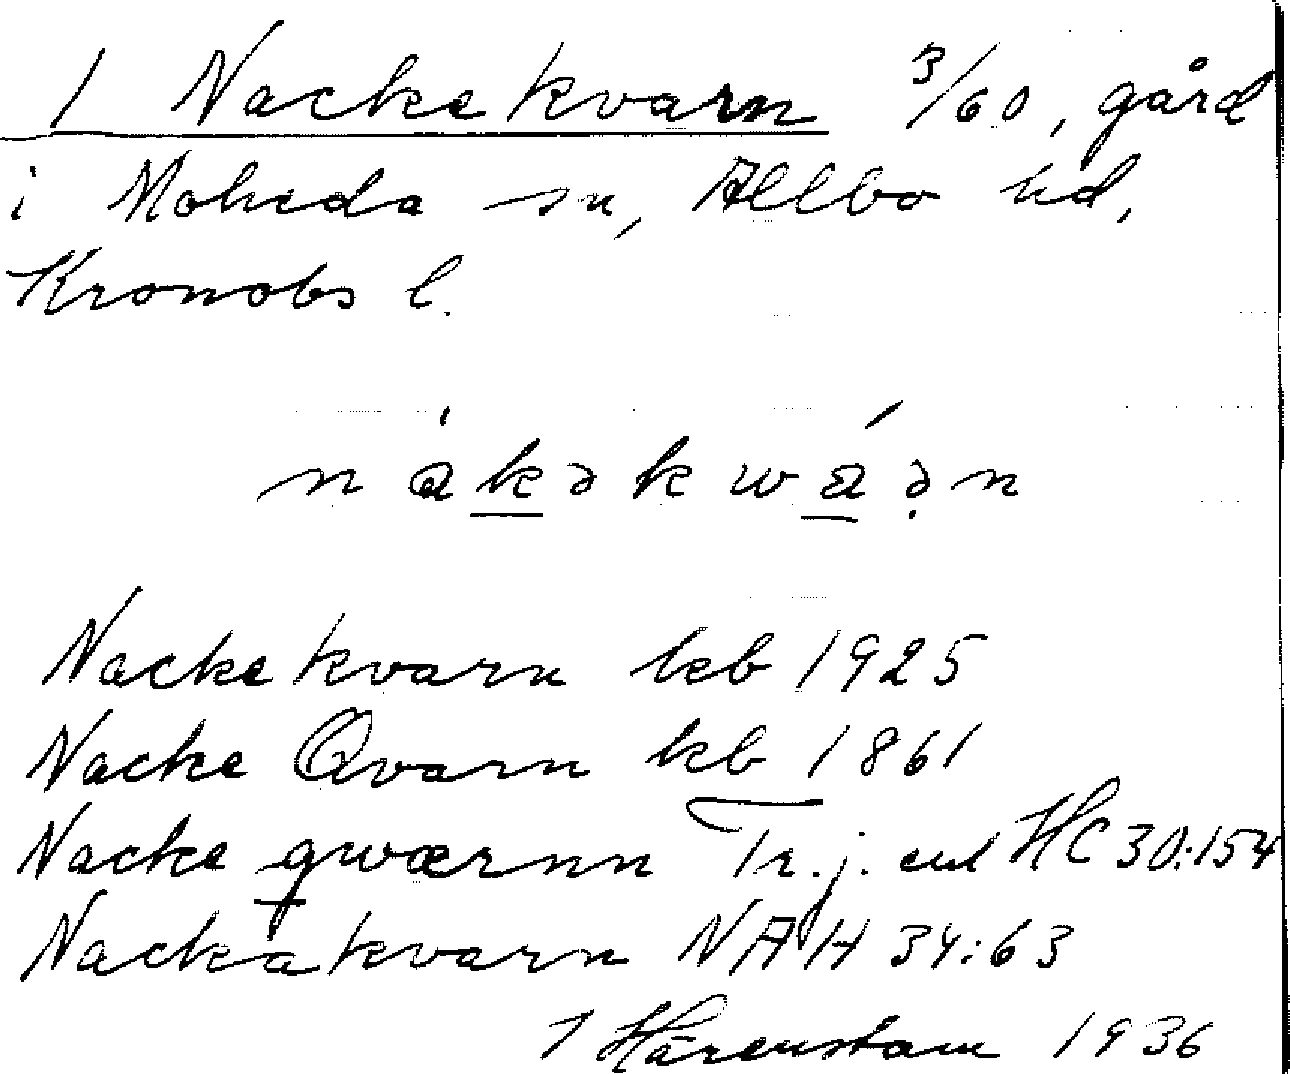 1 Nackekvarn 3/60, gård
i Moheda sn, Allbo hd,
Kronobs l.
nákəkwáən
Nackekvarn kb 1925
Nacke Qvarn kb 1861
Nacke qwærnn Tr. j. enl HC 30:154
Nackakvarn NAH 34:63
J Härenstam 1936